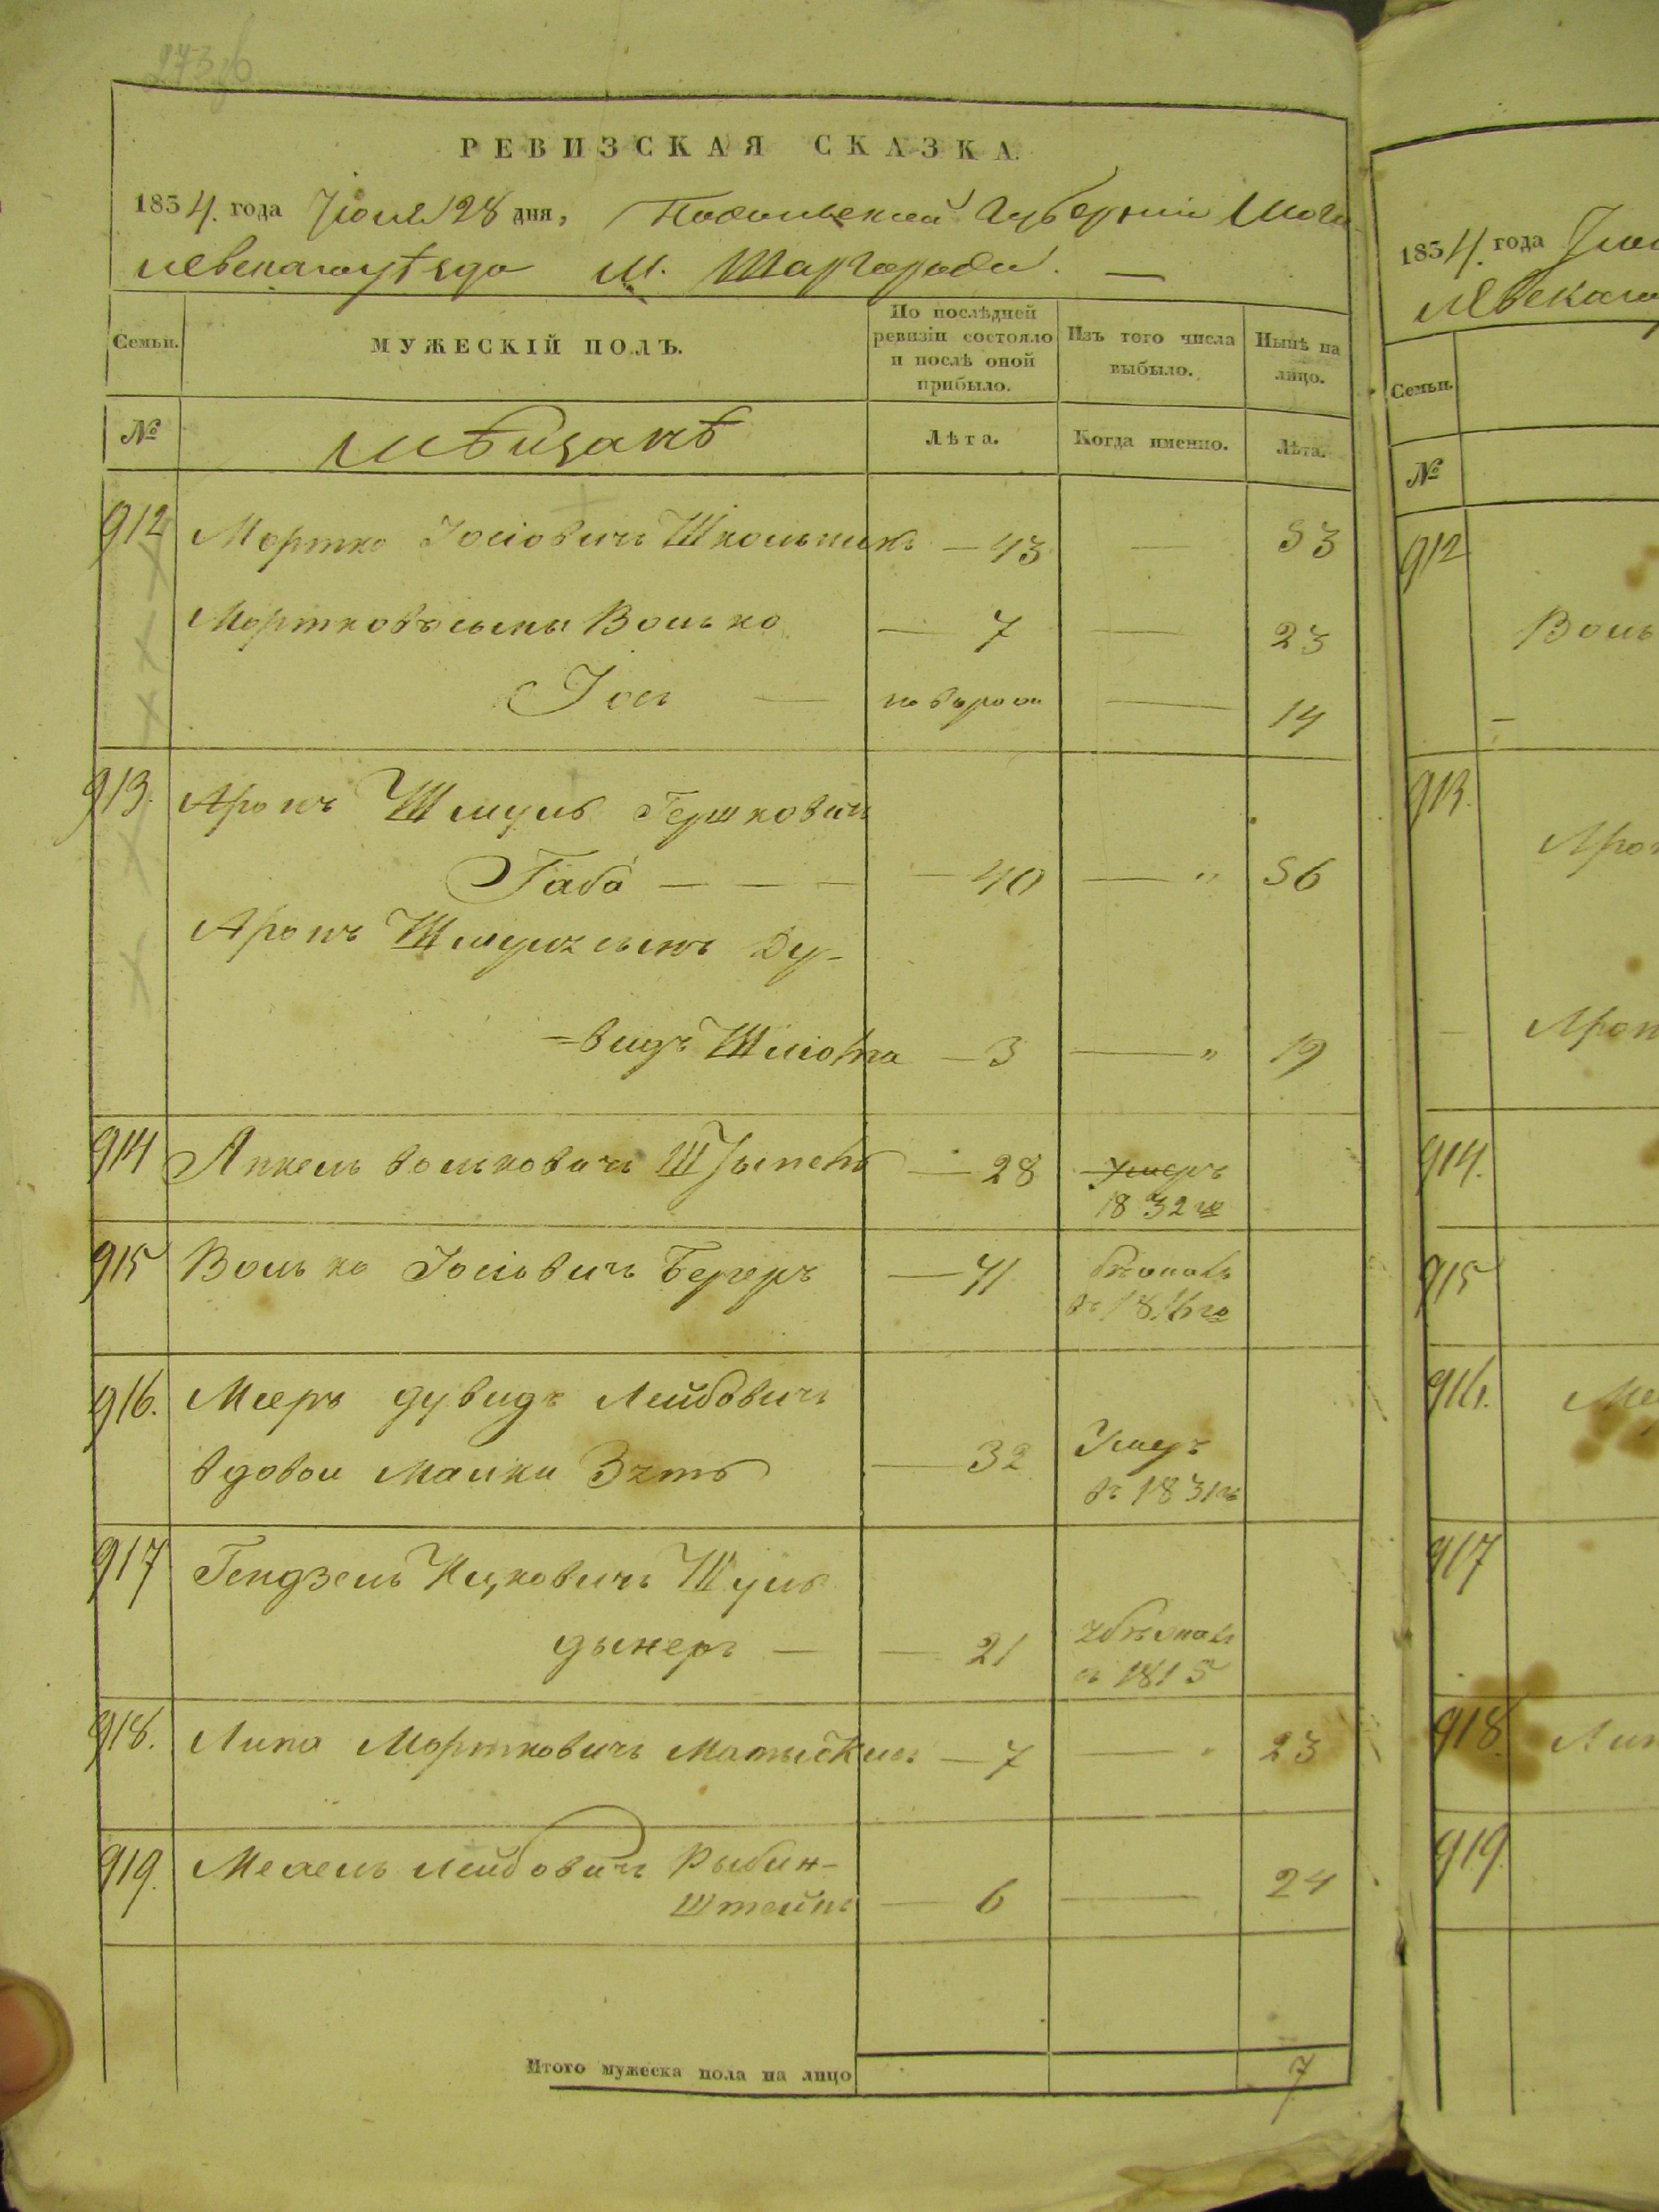 РЕВИЗСКАЯ СКАЗКА.
1834. года Июля 28 дня, Подольской Губерніи Моги
левскаго уѣзда м. Шаргорода. —
Семьи.
МУЖЕСКІЙ ПОЛЪ.
По послѣдней ревизіи состояло и послѣ оной прибыло.
Изъ того числа выбыло.
Нынѣ на лицо.
№
Мѣщанъ
Лѣта.
Когда именно.
Лѣта.
912 Мортко Іосіовичъ Школьникъ — 43 — 53
Мортковъ сынъ Волько — 7 — 23
Іось — — 14
913. Аронъ Шмуль Гершковичъ
Габа — — — — 40 — " 56
Аронъ Шмуля сынъ Ду-
=видъ Шліома — 3 — " 19
914 Янкель Вольковичъ — 28 Умеръ
1832 го
915 Волько Іосіовичъ Бергеръ — 41
916. Мееръ Дувидъ Лейбовичъ
вдовы Малки Зять — 32 Умеръ
въ 1831 гъ
917 Гендзель Ицковичъ Шуль
дынеръ — — 21
1815
918. Липа Мортковичъ — 7 — " 23
919. Лейбовичъ Рыбин-
штейнъ — 6 — 24
Итого мужеска пола на лицо 7
1834. года
левскаго
Семьи.
№
912
Воль
913.
Арон
Арон
914.
915
916.
Ме
917
918.
Лип
919.